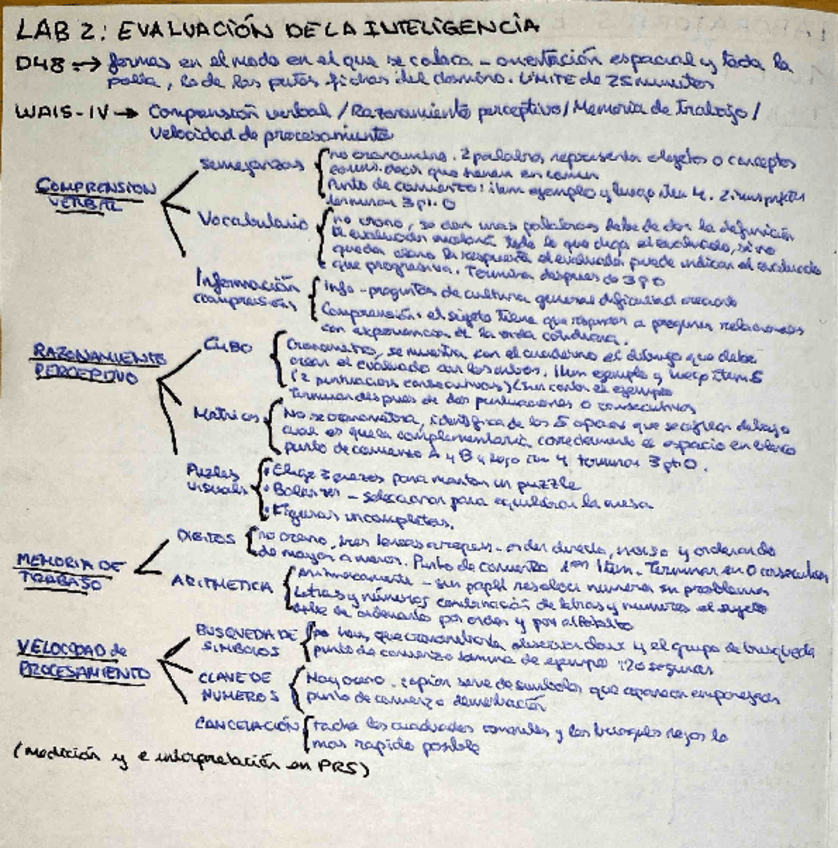 LAB 2: EVALUACIÓN DE LA INTELIGENCIA
D48 → formas en el modo en el que se coloca - orientación espacial y toda la
polla, lo de las putas fichas del domino. LÍMITE de 25 minutos
WAIS-IV → Comprensión verbal / Razonamiento perceptivo / Memoria de Trabajo /
Velocidad de procesamiento
COMPRENSION VERBAL
Semejanzas
no cronometro. 2 palabras representan objetos o conceptos
decir que tienen en comun
Punto de comienzo: item ejemplo y luego item 4.
terminar 3 pt. 0
Vocabulario
no crono, se dan unas palabras debe de dar la definición
El evaluador anotará todo lo que diga el evaluado, si no
queda claro la respuesta el evaluador puede indicar al evaluado
que progresiva. Termina despues de 3 p 0
Información
comprensión
Info - preguntas de cultura general dificultad creciente
Comprensión: el sujeto tiene que responder a preguntas relacionadas
con experiencias de la vida cotidiana.
RAZONAMIENTO PERCEPTIVO
CUBO
Cronometro, se muestra con el cuaderno el dibujo que debe
crear el evaluado con los cubos. Item ejemplo y luego item 5
(2 puntuacion consecutivas) (sin contar el ejemplo
Terminar despues de dos puntuaciones 0 consecutivas
Matrices
No se cronometra, identifica de las 5 opciones que se ofrecen debajo
cual es que la complementaria correctamente el espacio en blanco
punto de comienzo A y B y luego item 4 terminar 3 pt 0.
Puzles
visuales
• Elige 3 piezas para montar un puzzle
• Balanzas - seleccionar para equilibrar la mesa
• Figuras incompletas.
MEMORIA DE TRABAJO
DIGITOS
no crono, tres tareas a repetir - orden directo, inverso y ordenando
de mayor a menor. Punto de comienzo 1er item. Terminar en 0 consecutivas
ARITMETICA
Aritmeticamente - sin papel resolver numeros en problemas
Letras y números combinación de letras y numeros el sujeto
debe de ordenarlo por orden y por alfabeto
VELOCIDAD de PROCESAMIENTO
BUSQUEDA DE
SIMBOLOS
no hay que cronometrarla y el grupo de busqueda
punto de comienzo lamina de ejemplo 120 segundos
CLAVE DE
NUMEROS
Hay crono. copian serie de simbolos que aparecen emparejadas
punto de comienzo demostración
CANCELACIÓN
tacha los cuadrados amarillos y los triangulos rojos lo
mas rapido posible
(medición y e interpretación en PRS)